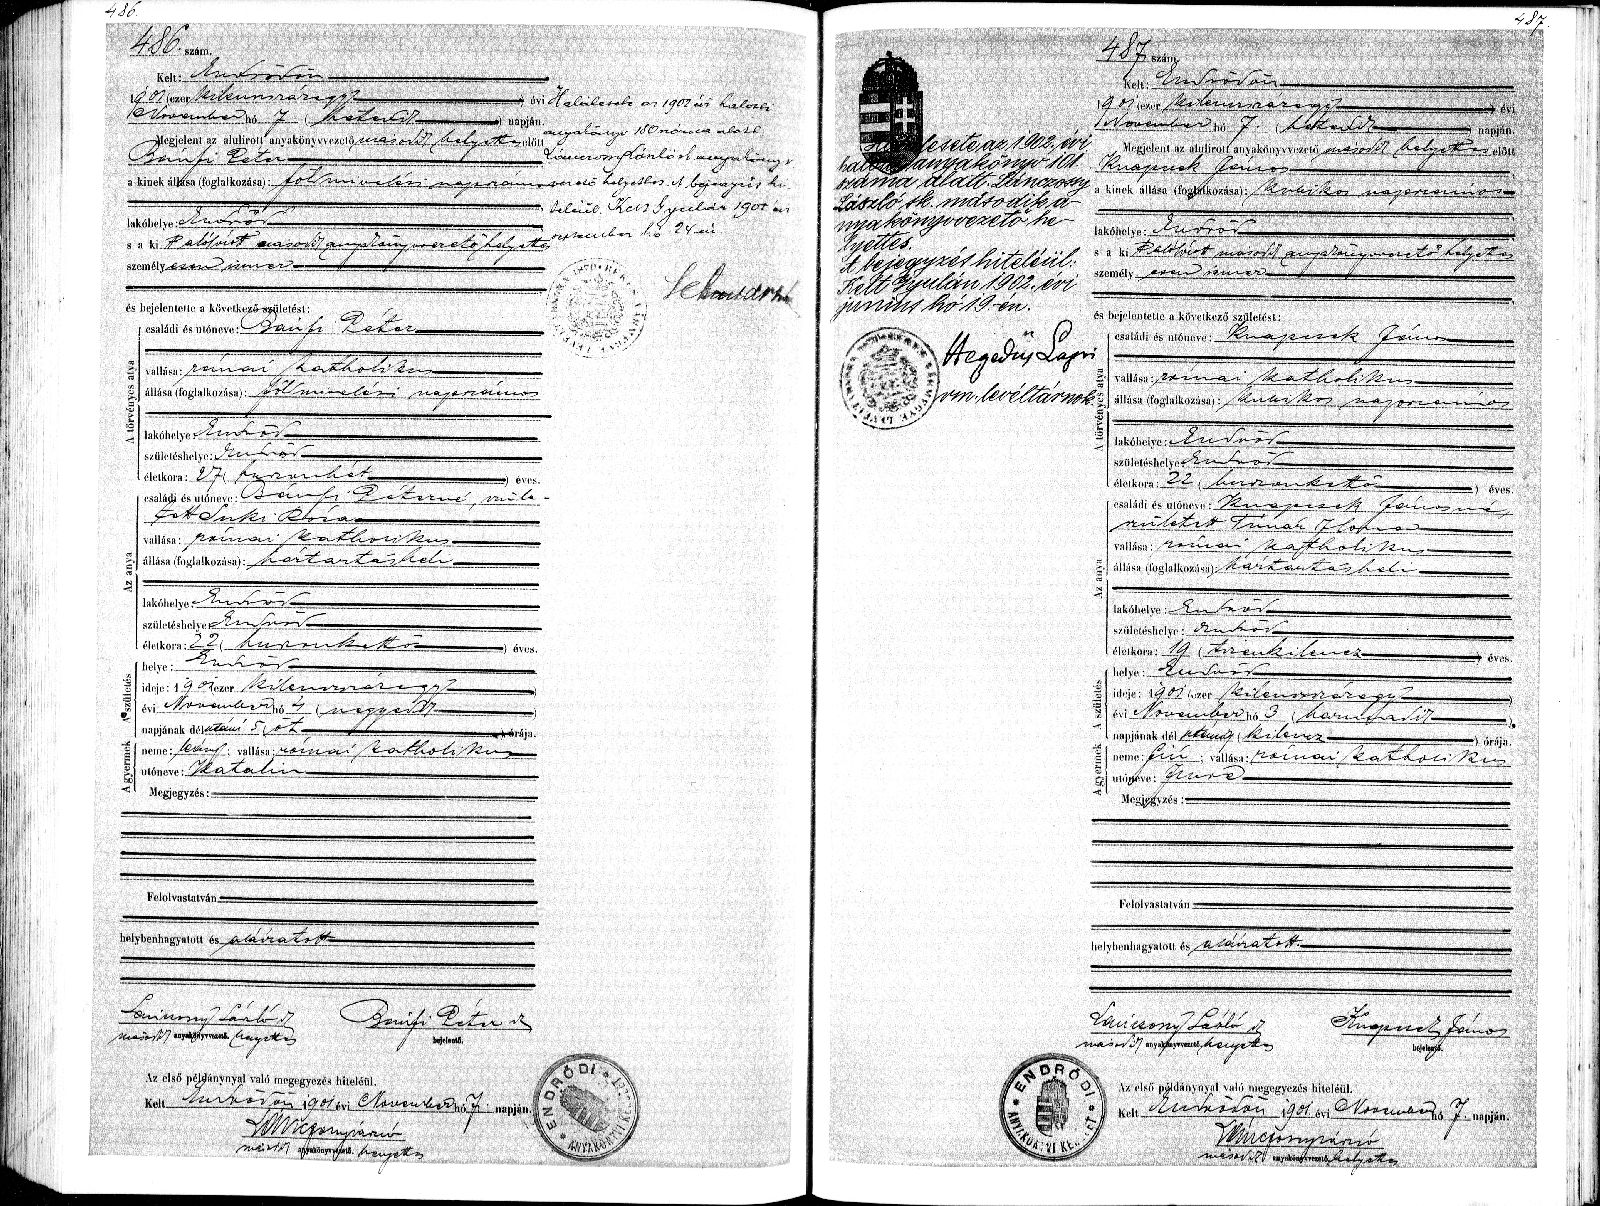 486.
486. szám.
Kelt: Endrődön
1901 (ezer kilenczszázegy) évi
November hó 7 (hetedik) napján.
Megjelent az alulirott anyakönyvvezető másodk helyettes előtt
Bánfi Péter
a kinek állása (foglalkozása): földmivelési napszámos
lakóhelye: Endrőd
s a ki
személy
és bejelentette a következő születést:
A törvényes atya
családi és utóneve: Bánfi Péter
vallása: római katholikus
állása (foglalkozása): földmivelési napszámos
lakóhelye: Endrőd
születéshelye: Endrőd
életkora: 27 (huszonhét) éves.
Az anya
családi és utóneve: Bánfi Péterné, szüle-
tett
vallása: római katholikus
állása (foglalkozása): háztartásbeli
lakóhelye: Endrőd
születéshelye: Endrőd
életkora: 22 (huszonkettő) éves.
A születés
helye: Endrőd
ideje: 1901 (ezer kilenczszázegy)
évi November hó 4 (negyedik)
napjának dél utáni 5 (öt) órája.
A gyermek
neme: leány; vallása: római katholikus
utóneve: Katalin
Megjegyzés:
Felolvastatván
helybenhagyatott és aláiratott
Bánfi Péter
másodk anyakönyvvezető. helyettes
bejelentő.
Az első példánynyal való megegyezés hiteléül.
Kelt Endrődön 1901 évi November hó 7. napján.
másodk anyakönyvvezető. helyettes
ENDRŐDI
Halálesete az 1901 évi halotti
anyakönyv 180 száma alatt.
Lánczossy László sk. anyakönyv
vezető helyettes. A bejegyzés hi-
teléül. Kelt Gyulán 1901 évi
hó 24-én
487.
487. szám.
Kelt: Endrődön
1901 (ezer kilenczszázegy) évi
November hó 7. (hetedik) napján.
Megjelent az alulirott anyakönyvvezető másodk helyettes előtt
Knapcsek János
a kinek állása (foglalkozása): kubikos napszámos
lakóhelye: Endrőd
s a ki
személy
és bejelentette a következő születést:
A törvényes atya
családi és utóneve: Knapcsek János
vallása: római katholikus
állása (foglalkozása): kubikos napszámos
lakóhelye: Endrőd
születéshelye: Endrőd
életkora: 22 (huszonkettő) éves.
Az anya
családi és utóneve: Knapcsek Jánosné,
született Tímár Ilona
vallása: római katholikus
állása (foglalkozása): háztartásbeli
lakóhelye: Endrőd
születéshelye: Endrőd
életkora: 19 (tizenkilencz) éves.
A születés
helye: Endrőd
ideje: 1901 (ezer kilenczszázegy)
évi November hó 3 (harmadik)
napjának dél (kilencz) órája.
A gyermek
neme: fiú; vallása: római katholikus
utóneve: Imre
Megjegyzés:
Felolvastatván
helybenhagyatott és aláiratott
Knapcsek János
másodk anyakönyvvezető. helyettes
bejelentő.
Az első példánynyal való megegyezés hiteléül.
Kelt Endrődön 1901. évi November hó 7. napján.
másodk anyakönyvvezető. helyettes
ENDRŐDI
Halálesete az 1902. évi
halotti anyakönyv 101
száma alatt. Lánczossy
László sk. második a-
nyakönyvvezető he-
lyettes.
A bejegyzés hiteléül:
Kelt Gyulán 1902. évi
junius hó 19-én.
Hegedüs Lajos
vm. levéltárnok